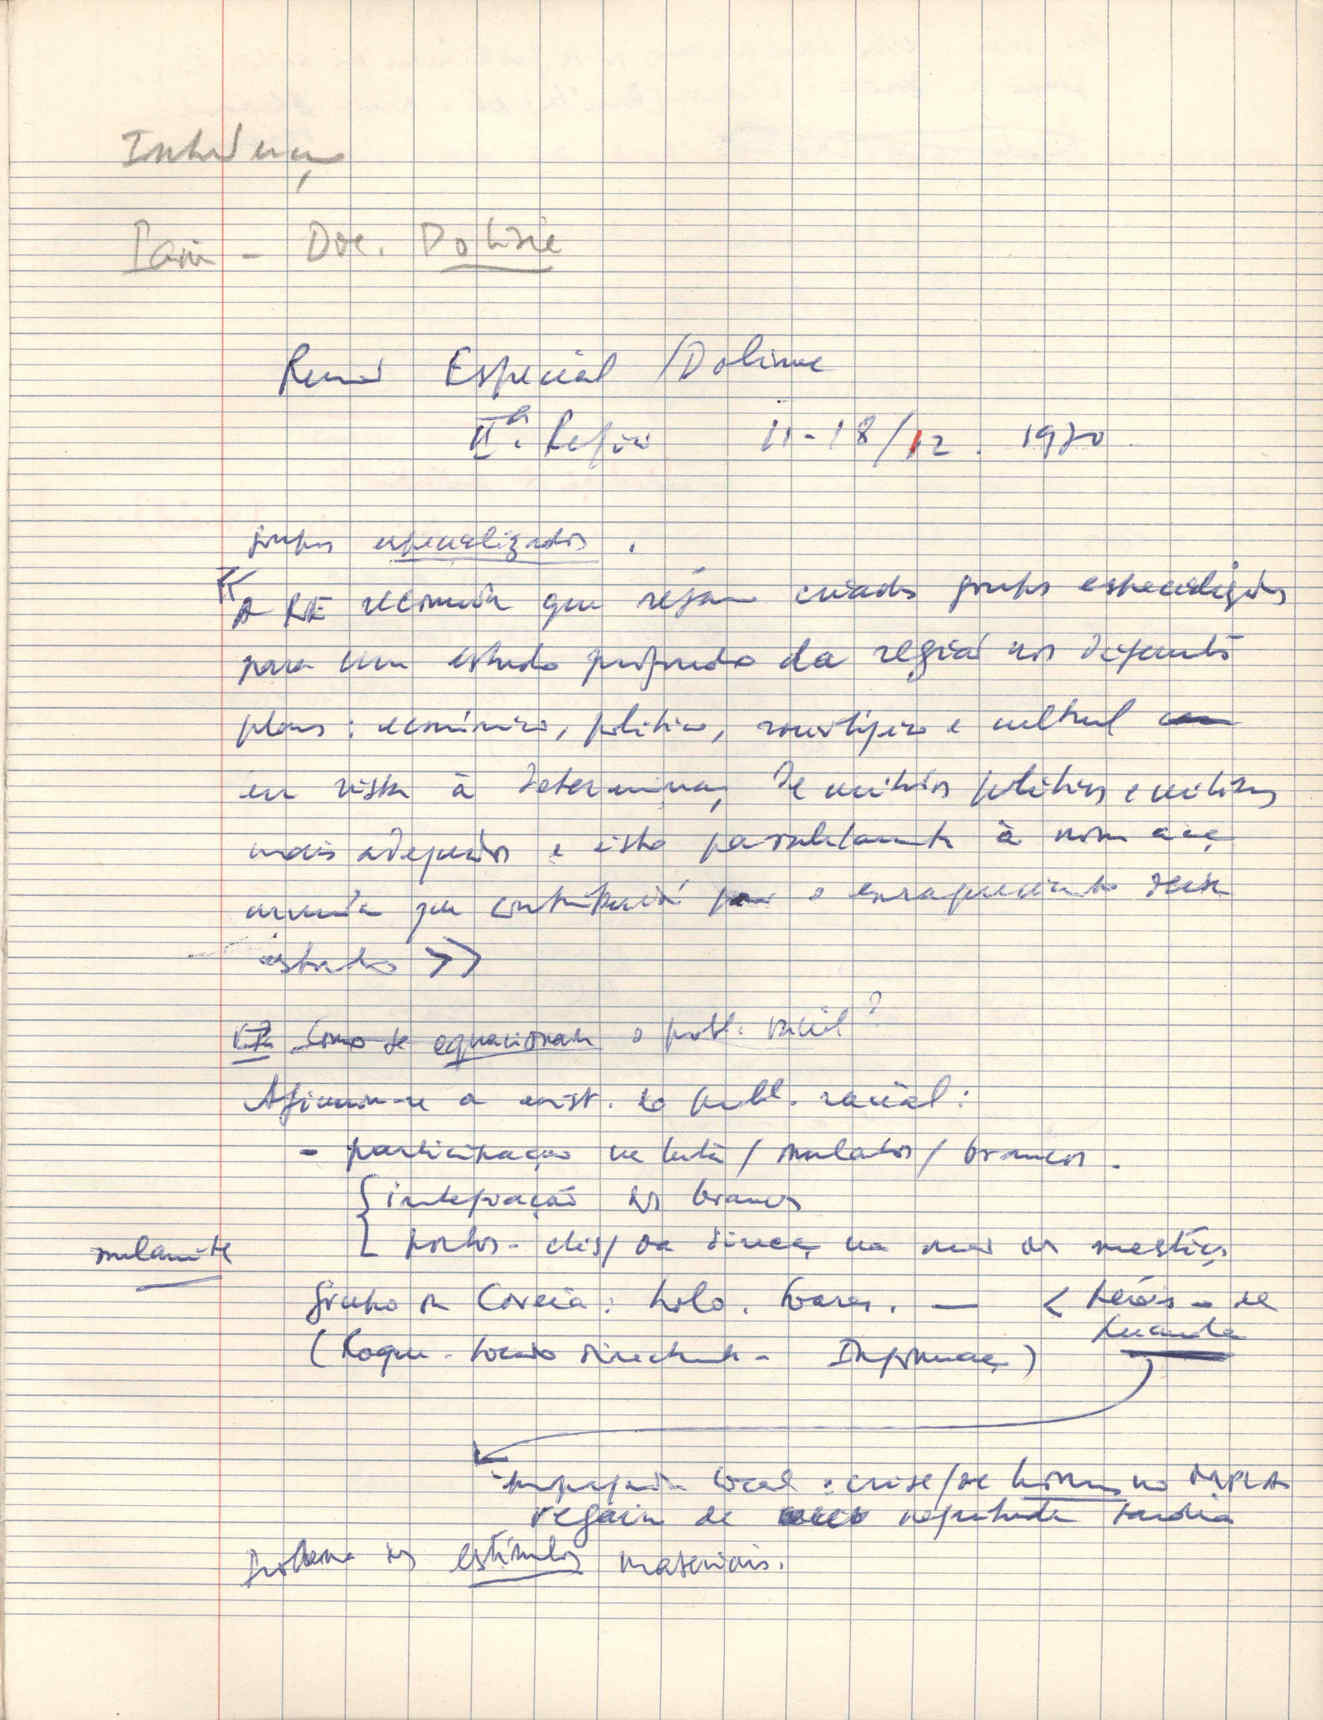 Introduç
Paris - Doc. Dolisie
Reunião Especial / Dolisie
IIª. Região 11-18/12. 1970
grupos especializados.
« A RE recomenda que sejam criados grupos especializados
para um estudo profundo da região nos diferentes
planos: económico, político, sociológico e cultural
em vista à determinaç de critérios políticos e militares
mais adequados e isto paralelamente à nossa acç
armada que contribuirá para o enraquecimento deste
estudo »
Como se equacionam o probl. racial?
Afirmou-se a exist. do probl. racial:
- participação na luta / mulatos / brancos.
integração dos brancos
postos - chis / da direcç na mão dos mestiços
mulamite
grupo da Coreia: Lolo. Soares. — < heróis - de
Luanda
(Roque - directamente - Informaç)
propaganda local: crise / de homens no MPLA
regain de negritude tardia
Problema dos estímulos materiais.